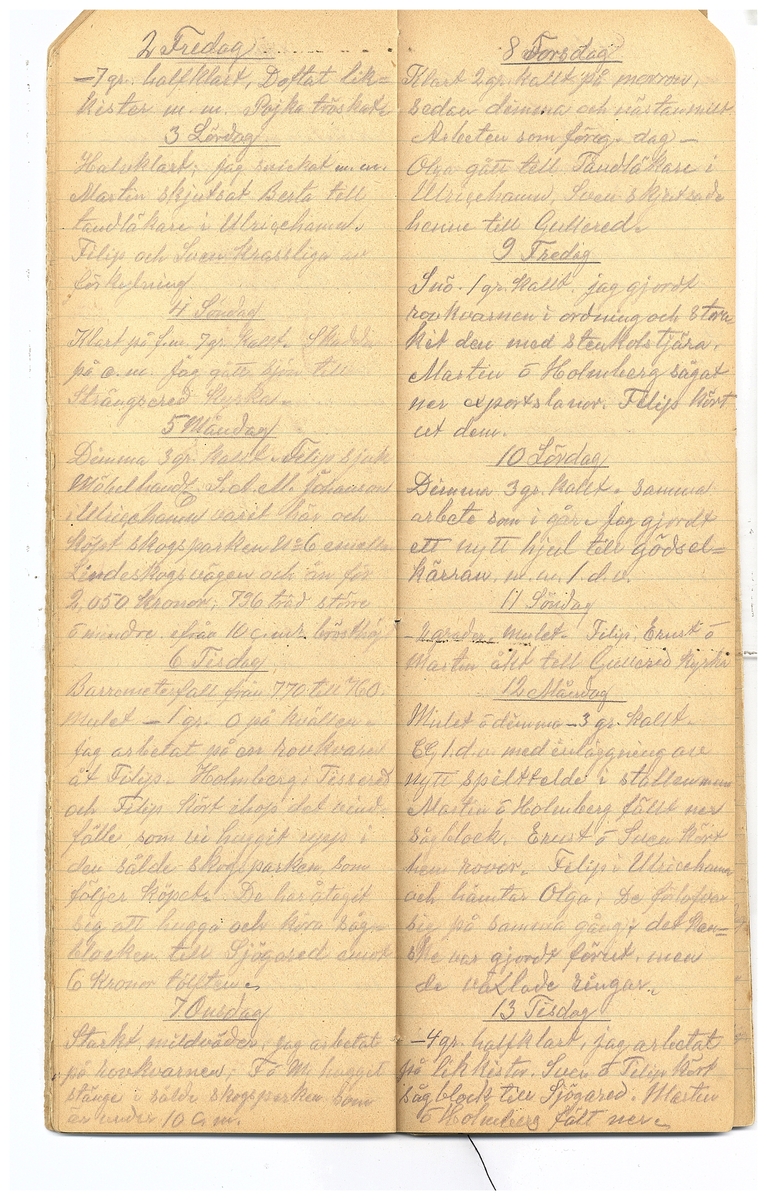 2 Fredag
-7 gr. halfklart, Doftat lik=
kister m.m. Pojka tröskade
3 Lördag
Halvklart; jag snickat m.m.
Martin skjutsat Berta till
tandläkare i Ulricehamn.
Filip och Sven krassliga av
förkylning
4 Söndag
Klart på f.m. 7 gr. kallt.
på e.m. Jag gått till
Strängsered Kyrka.
5 Måndag
Dimma 3 gr. kallt. Filip sjuk
Möbelhandl. S.A.M. Johanson
i Ulricehamn varit här och
köpt skogsparken No 6 emellan
Lindeskogsvägen och ån för
2,050 Kronor; 796 träd större
o mindre ifrån 10 c.mr. brösthöjd
6 Tisdag
Barrometerfall från 770 till 760.
Mulet -1 gr. 0 på kvällen.
Jag arbetat på en rovkvarn
åt Filip. Holmberg i Tissered
och Filip kört ihop det vind-
fälle som vi huggit upp i
den sålde skogsparken som
följer köpet. De har åtagit
sig att hugga och köra såg-
blocken till Sjögared emot
6 Kronor tolften.
7 Onsdag
Starkt mildväder, jag arbetat
på rovkvarnen; F o M hugget
stänge i sålde skogsparken som
är under 10 c.m.
8 Torsdag
Klart 2 gr. kallt på morron,
sedan dimma och nästan milt
Arbeten som föreg. dag -
Olga gått till Tandläkare i
Ulricehamn, Sven skjutsade
henne till Gullered.
9 Fredag
Snö. 1 gr. kallt. jag gjordt
rovkvarnen i ordning och stru
kit den med stenkolstjära.
Martin o Holmberg sågat
ner exportslanor. Filip kört
ut dem.
10 Lördag
Dimma 3 gr. kallt. samma
arbete som i går. Jag gjordt
ett nytt hjul till gödsel=
kärran. m.m. 1.d.v.
11 Söndag
-2 grader. mulet. Filip, Ernst o
Martin åkt till Gullered Kyrka
12 Måndag
Mulet o dimma -3 gr. kallt.
EG 1.d.v. med inläggning av
nytt spiltelde i stallen m.m
Martin o Holmberg fällt ner
sågblock. Ernst o Sven kört
hem rovor. Filip i Ulricehamn
och hämtar Olga; De förlofvar
sig på samma gång; det kan=
ske var gjordt förut, men
de växlade ringar.
13 Tisdag
-4 gr. halfklart, jag arbetat
på likkistor. Sven o Filip kört
sågblock till Sjögared. Martin
o Holmberg fält ner.